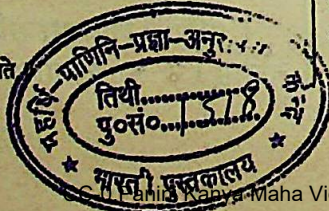 ते
महर्षि-पाणिनि-प्रज्ञा-अनु
तिथी..............
पु०सं०....1518
भारती पुस्तकालय
Panini Kanya Maha Vi